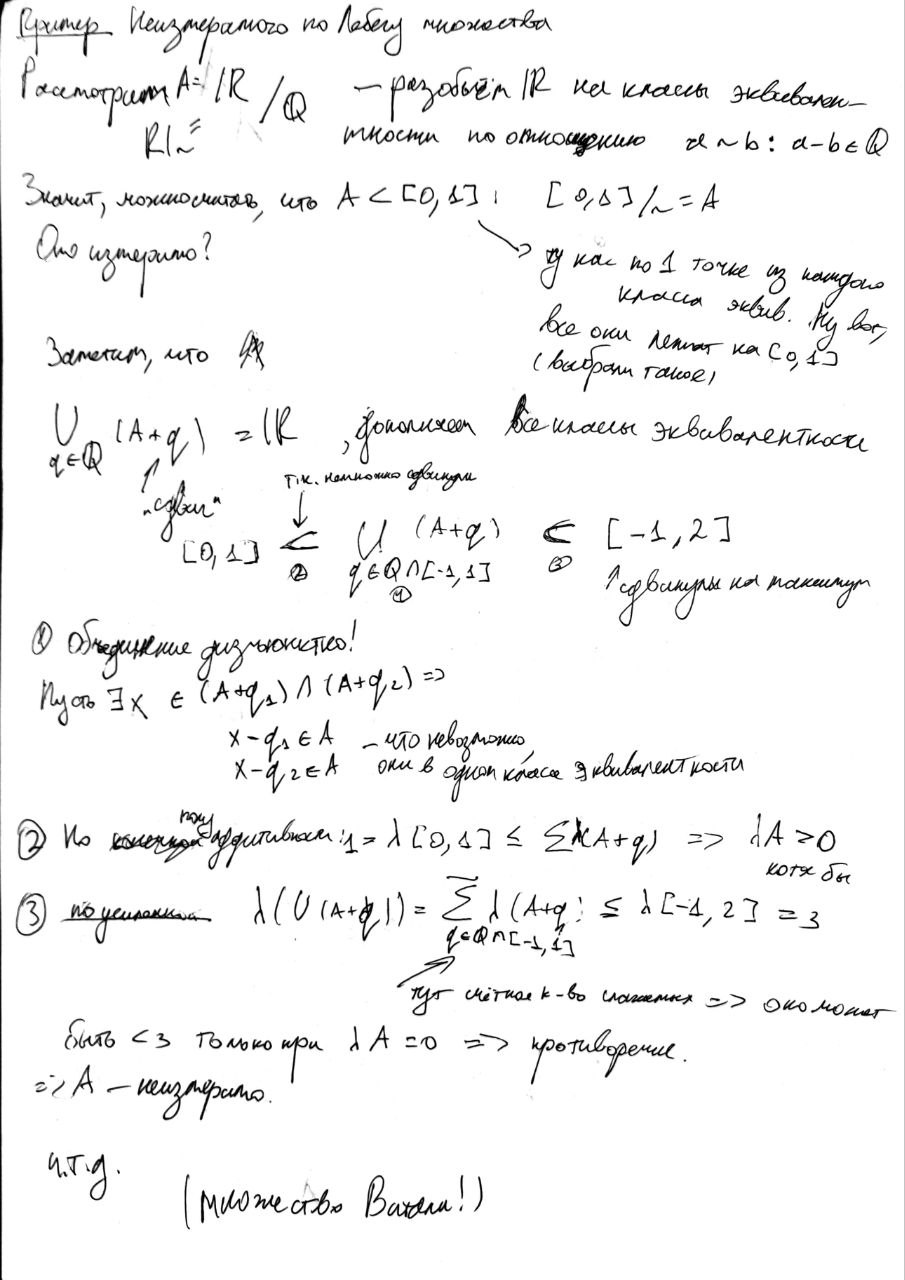 Пример Неизмеримого по Лебегу множества
Рассмотрим A = ℝ/ℚ — разобьём ℝ на классы эквивален-
ℝ/~ = тности по отношению a ~ b : a-b ∈ ℚ
Значит, можно считать, что A ⊂ [0,1] : [0,1]/~ = A
Оно измеримо?
ну нас по 1 точке из каждого
класса эквив. Ну вот,
все они лежат на [0,1]
(выбрали такое)
Заметим, что
⋃ (A+q) = ℝ, дополняет все классы эквивалентности
q∈ℚ
"сдвиг"
т.к. немножко сдвинули
[0,1] ⊂ ⋃ (A+q) ⊂ [-1,2]
② q∈ℚ∩[-1,1] ③
① ↑ сдвинулы на максимум
① Объединение дизъюнктно!
Пусть ∃x ∈ (A+q₁) ∩ (A+q₂) =>
x - q₁ ∈ A — что невозможно,
x - q₂ ∈ A они в одном классе эквивалентности
② По полуаддитивности: 1 = λ[0,1] ≤ Σλ(A+q) => λA > 0
хотя бы
③ λ(∪(A+q)) = Σ λ(A+q) ≤ λ[-1,2] = 3
q∈ℚ∩[-1,1]
тут счётное к-во слагаемых => оно может
быть < 3 только при λA = 0 => противоречие.
=> A — неизмеримо.
ч.т.д.
(множество Витали!)